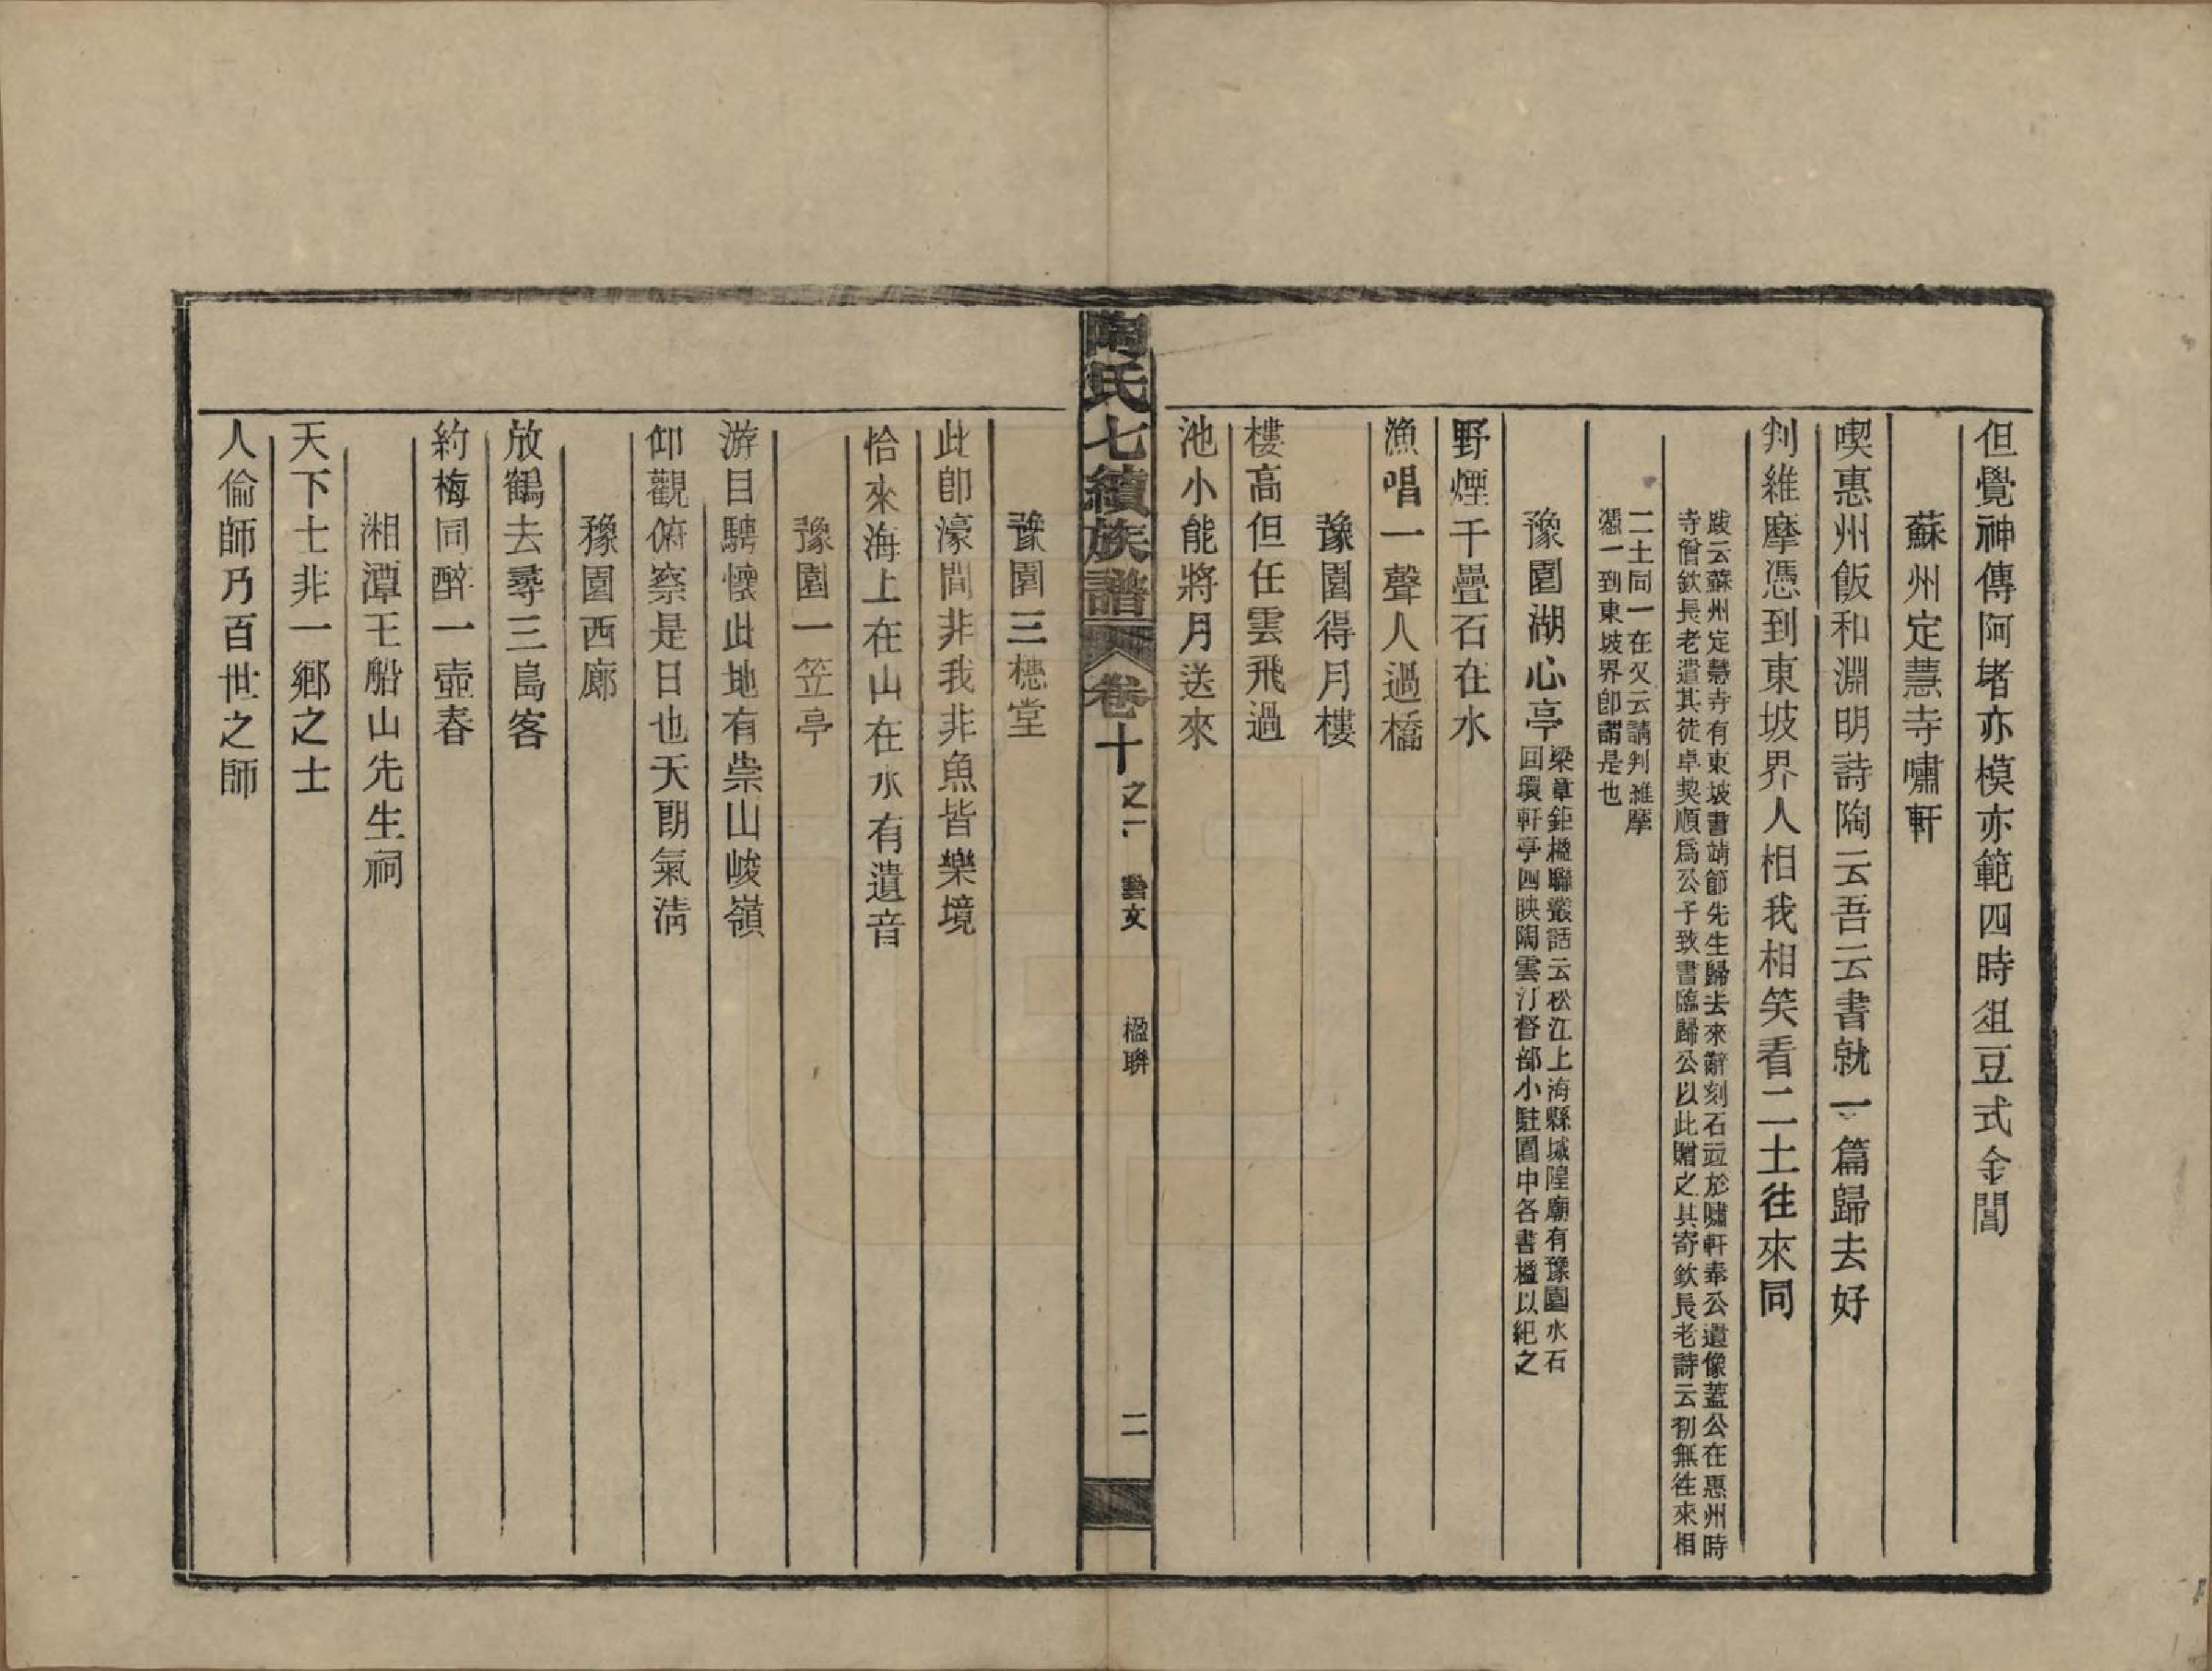 但覺神傳阿堵亦模亦範四時俎豆式金閶
蘇州定慧寺嘯軒
喫惠州飯和淵明詩陶云吾云書就一篇歸去好
判維摩憑到東坡界人相我相笑看二土往來同
跋云蘇州定慧寺有東坡書靖節先生歸去來辭刻石竝於嘯軒奉公遺像蓋公在惠州時
寺僧欽長老遣其徒卓契順爲公子致書臨歸公以此贈之其寄欽長老詩云初無往來相
二土同一在又云請判維摩
憑一到東坡界卽謂是也
豫園湖心亭
梁章鉅楹聯叢話云松江上海縣城隍廟有豫園水石
回環軒亭四映陶雲汀督部小駐園中各書楹以紀之
野煙千疊石在水
漁唱一聲人過橋
豫園得月樓
樓高但任雲飛過
池小能將月送來
陶氏七續族譜 卷十之一 藝文 楹聯 二
豫園三穗堂
此卽濠間非我非魚皆樂境
恰來海上在山在水有遺音
豫園一笠亭
游目騁懷此地有崇山峻嶺
仰觀俯察是日也天朗氣淸
豫園西廊
放鶴去尋三島客
約梅同醉一壺春
湘潭王船山先生祠
天下士非一鄉之士
人倫師乃百世之師